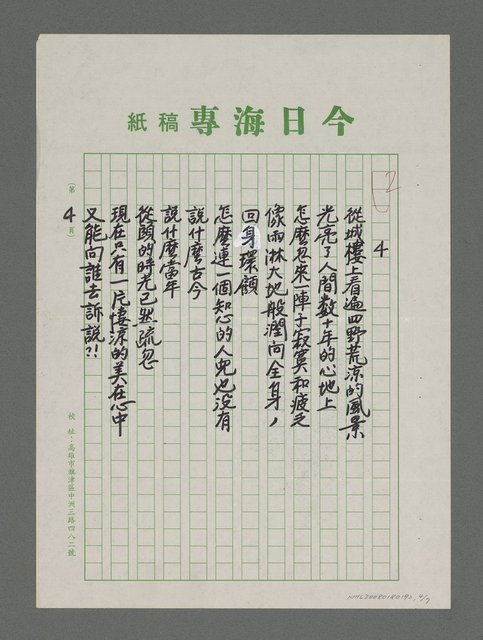 今日海專 稿紙
2
4
從城樓上看遍四野荒涼的風景
光亮了人間数十年的心地上
怎麼忽來一陣子寂寞和疲乏
像雨淋大地般潤向全身，
回身環顧
怎麼連一個知心的人兒也没有
説什麼古今
説什麼當年
從頭的時光已然疏忽
現在只有一片悽涼的美在心中
又能向誰去訴説?!
（第 4 頁）
校 址：高雄市旗津區中洲三路四八二號